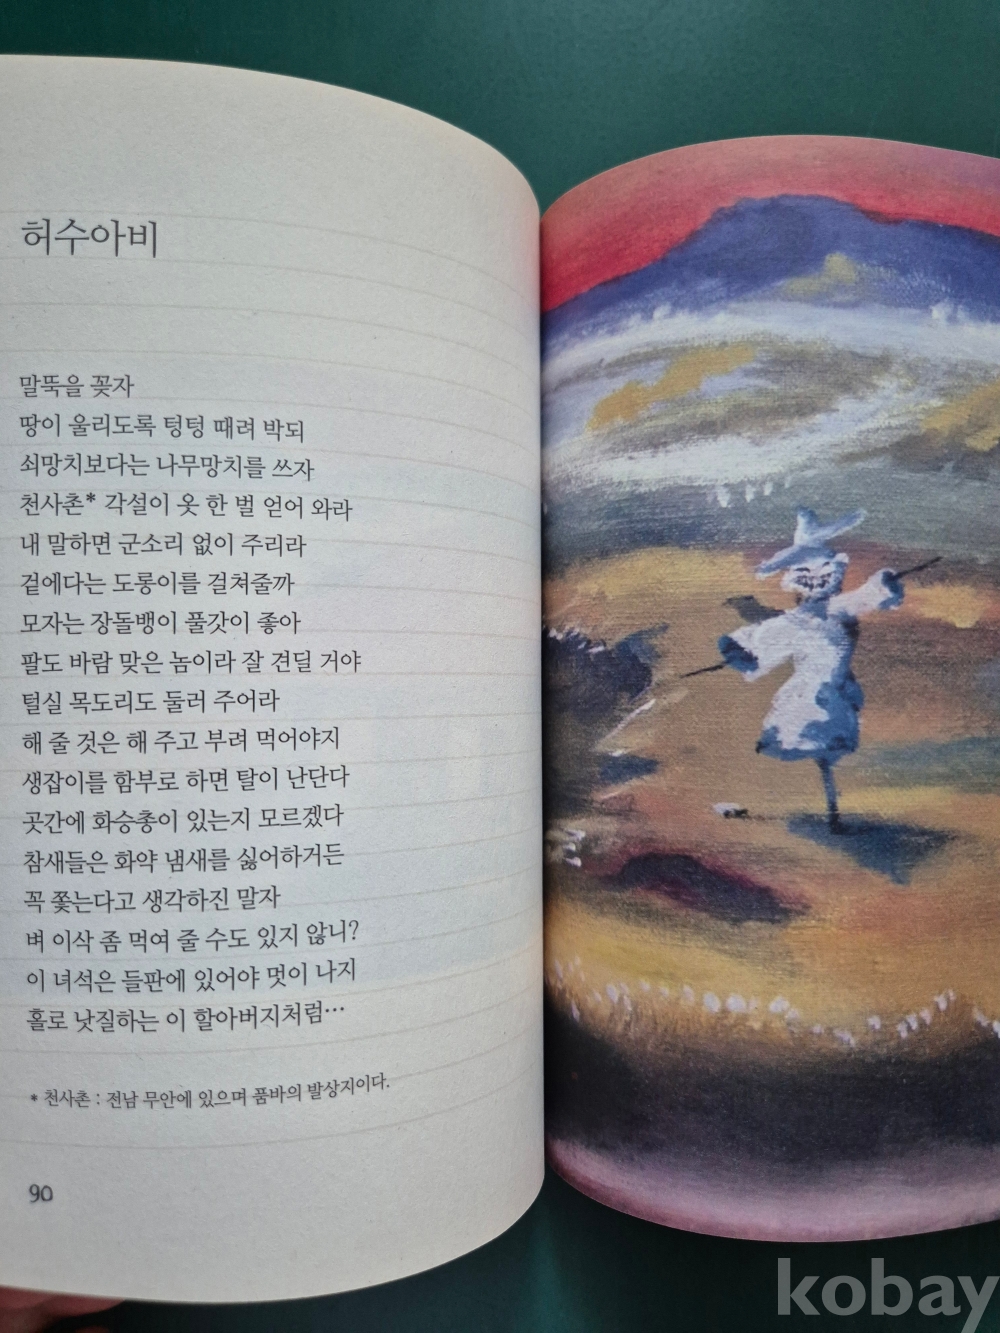 허수아비
말뚝을 꽂자
땅이 울리도록 텅텅 때려 박되
쇠망치보다는 나무망치를 쓰자
천사촌* 각설이 옷 한 벌 얻어 와라
내 말하면 군소리 없이 주리라
겉에다는 도롱이를 걸쳐줄까
모자는 장돌뱅이 풀갓이 좋아
팔도 바람 맞은 놈이라 잘 견딜 거야
털실 목도리도 둘러 주어라
해 줄 것은 해 주고 부려 먹어야지
생잡이를 함부로 하면 탈이 난단다
곳간에 화승총이 있는지 모르겠다
참새들은 화약 냄새를 싫어하거든
꼭 쫓는다고 생각하진 말자
벼 이삭 좀 먹여 줄 수도 있지 않니?
이 녀석은 들판에 있어야 멋이 나지
홀로 낫질하는 이 할아버지처럼…
* 천사촌 : 전남 무안에 있으며 품바의 발상지이다.
90
kobay